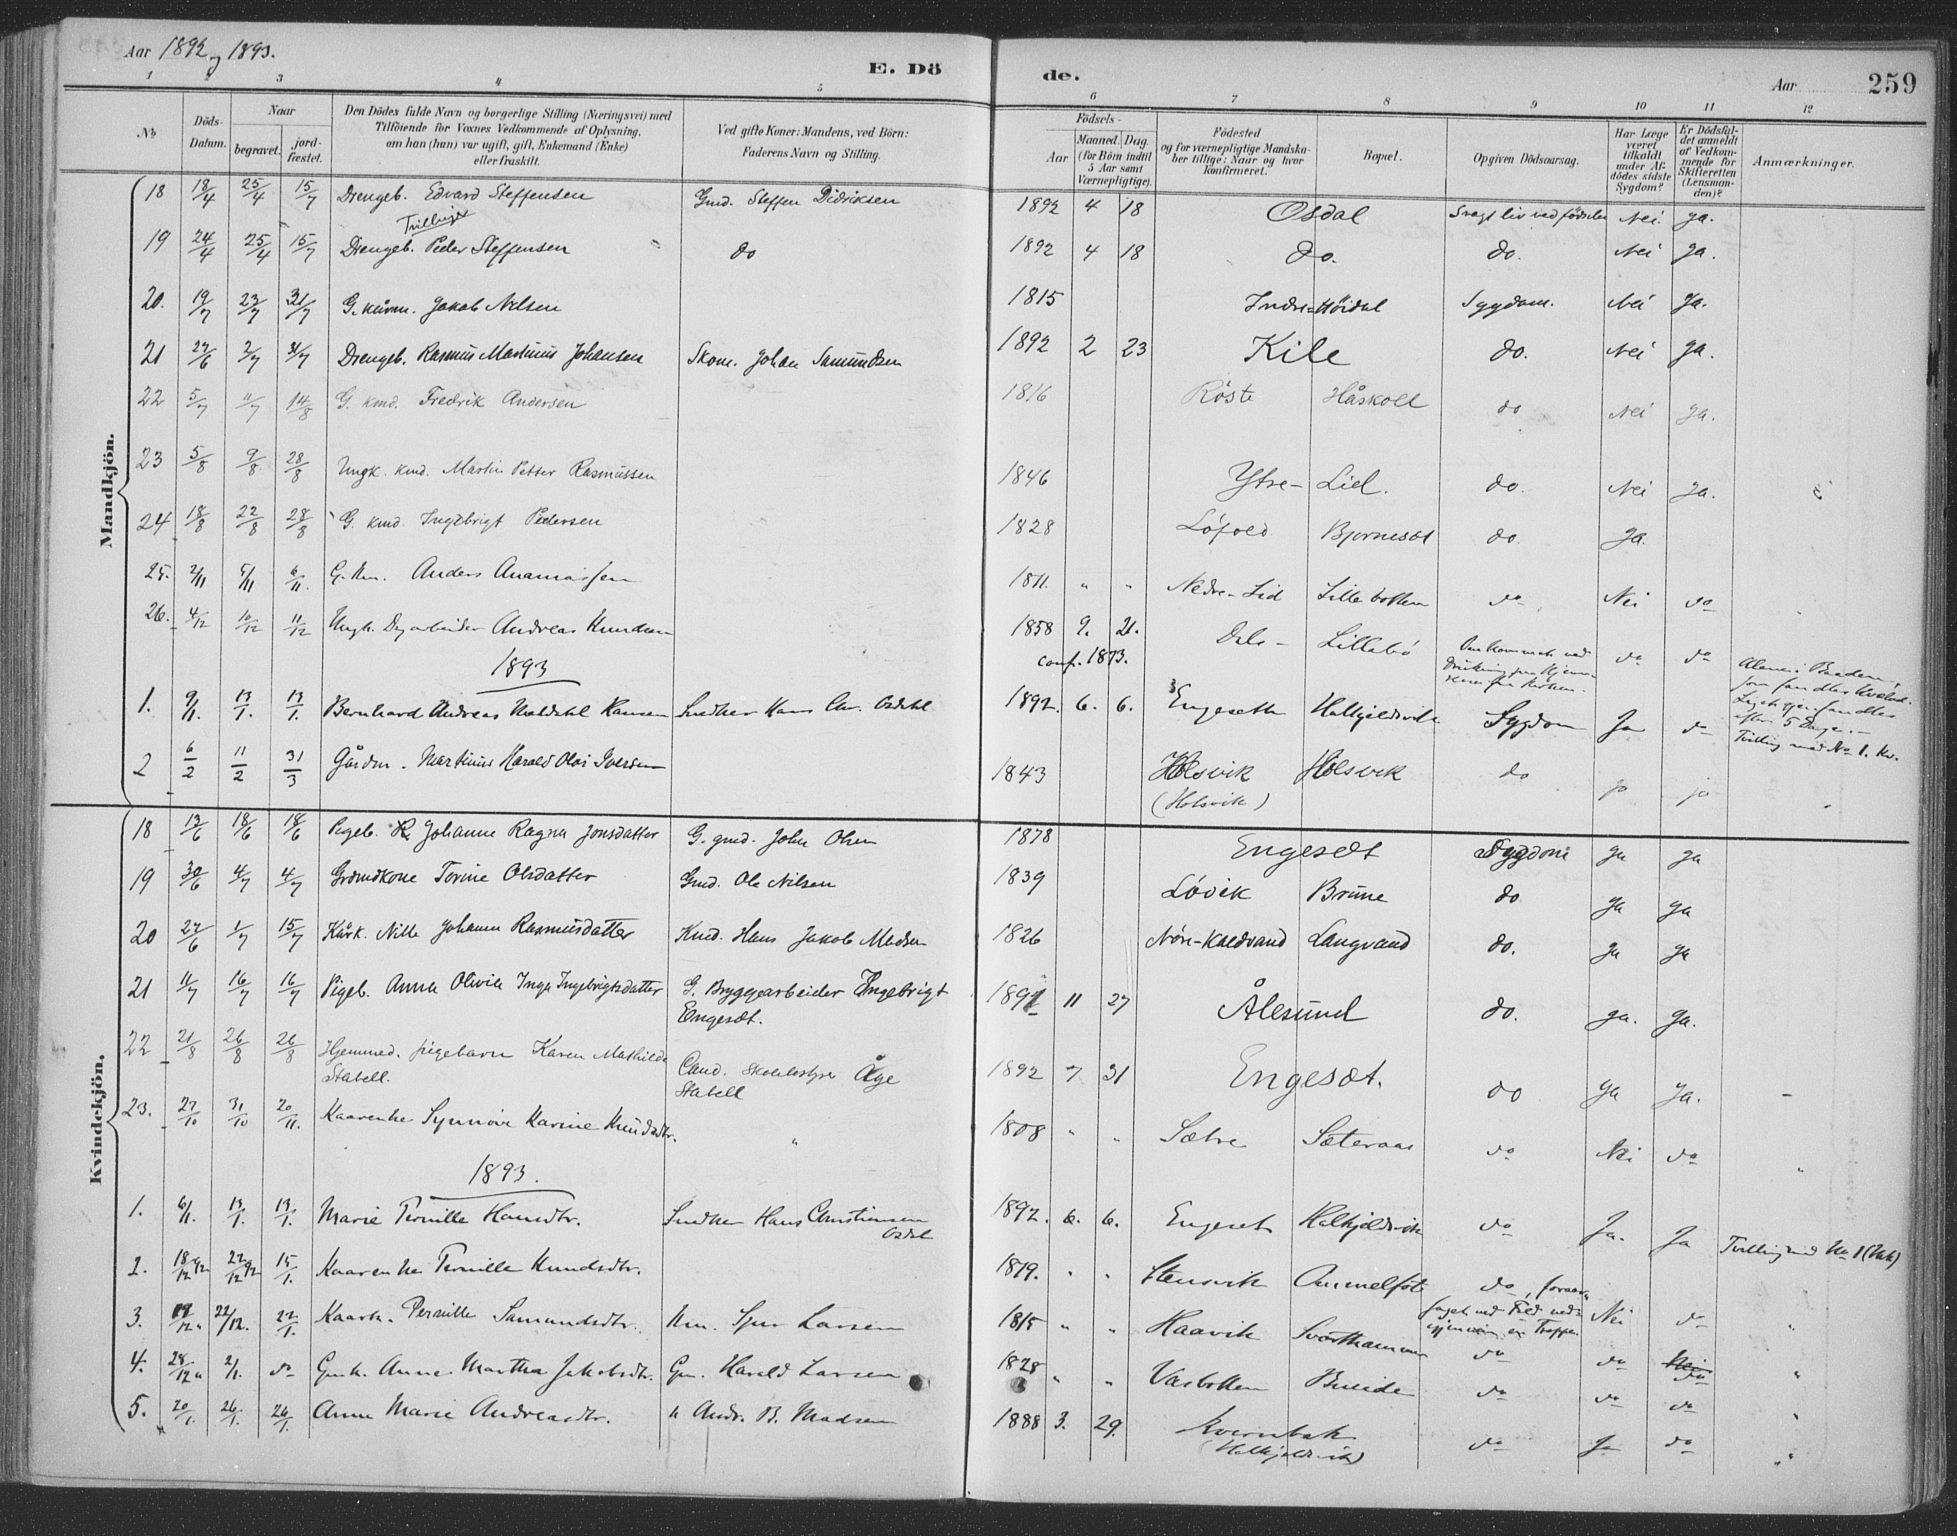 Aar 1892 og 1893.
E. Döde.
Aar
259
1 2 3 4 5 6 7 8 9 10 11 12
No
Döds-Datum.
Naar
begravet.
jordfæstet.
Den Dödes fulde Navn og borgerlige Stilling (Næringsvei) med
Tilföiende for Voxnes Vedkommende af Oplysning,
om han (hun) var ugift, gift, Enkemand (Enke)
eller fraskilt.
Ved gifte Koner: Mandens, ved Börn:
Faderens Navn og Stilling.
Födsels-
Aar
Maaned. Dag
(for Börn indtil
5 Aar samt
Værnepligtige).
Födested
og for værnepligtige Mandska-
ber tillige: Naar og hvor
konfirmeret.
Bopæl.
Opgiven Dödsaarsag.
Har Læge
været
tilkaldt
under Af-
dödes sidste
Sygdom?
Er Dödsfal-
det anmeldt
af Vedkom-
mende for
Skifteretten
(Lensman-
den)?
Anmærkninger.
Mandkjön.
18 18/4 25/4 15/7 Drengeb. Edvard Steffensen Gmd. Steffen Didriksen 1892 4 18 Osdal Svagt liv ved fødselen Nei ja.
Tvillinger
19 24/4 25/4 15/7 Drengeb. Peder Steffensen do 1892 4 18 do. do. Nei ja.
20. 19/7 23/7 31/7 G. kårm. Jakob Nilsen 1815 Indre-Høidal Sygdom. Nei ja.
21 27/6 2/7 31/7 Drengeb. Rasmus Martinus Johansen Skom. Johan Samundsen 1892 2 23 Kile do. Nei ja.
22 5/7 11/7 14/8 G. kmd. Fredrik Andersen 1816 Røste Håskoll do Nei ja.
23 5/8 9/8 28/8 Ungk. kmd. Martin Petter Rasmussen 1846 Ytre-Lid. do. Nei ja.
24 18/8 22/8 28/8 G. kmd. Ingebrigt Pedersen 1828 Løfold Bjørnesæt do. ja.
25. 2/11 5/11 6/11. G. Km. Anders Ananiassen 1811. " " Nedre-Lid Lillebotten do Nei do
26. 4/12 10/12 11/12 Ungk. Dagarbeider Andreas Knudsen 1858 9. 21. Dale- Lillebø Omkommet ved
conf. 1873. do do
1893
1. 9/1. 13/1. 13/1. Bernhard Andreas Hansen Snedker Hans Chr. Osdal 1892. 6. 6. Engesetth Halkjeldsvik Sygdom Ja do Tvilling med No 1. Kv.
2 6/2 11/2 31/3 Gårdm. Martinus Harald Olai Iversen 1843 Holsvik Holsvik do jo jo
(Holsvik)
Kvindekjön.
18 13/6 18/6 18/6 Pigeb. Johanne Ragna Jonsdatter G. gmd. John Olsen 1878 Engesæt Sygdom ja ja
19 30/6 4/7 4/7 Grdmdkone Torine Olsdatter Gmd. Ole Nilsen 1839 Løvik Brune do ja ja
20 27/6 1/7 15/7 Kårk. Nille Johanne Rasmusdatter Kmd. Hans Jakob Madsen 1826 Nóre-Kaldvand Langvand do. ja ja
21 11/7 16/7 16/7 Pigeb. Anna Olivia Inga Ingebrigtsdatter G. Bryggearbeider Engebrigt
Engesæt. 1891 11 27 Ålesund do. ja. ja.
22 21/8 26/8 26/8 Hjemmed. pigebarn Karen Mathilde
Stabell. Cand. Skolebestyr Åge
Stabell 1892 7 31 Engesæt. do ja ja.
23. 27/10 31/10 20/11. Kaarenke Synnøve Karine Knudsdtr. " 1808 " " Sætre Sæteraas do Nei do "
1893.
1. 6/1. 13/1. 13/1. Marie Pernille Hansdtr. Snedker Hans Christiansen
Osdal 1892. 6. 6. Engeset Halkjeldsvik do Ja. Ja Tvilling med No 1 (Mk)
2. 18/12 92 22/12 92 15/1. Kaarenke Pernille Knudsdtr. 1819. " " Stensvik Ammelfot do,
3. 19/12 " 22/12. 22/1. Kaark. Pernille Samundsdtr. Km. Sjur Larsen 1815 " " Haavik Svorthammer do Nei do "
4. 28/12 " 2/1. do Gmk. Anne Martha Jakobsdtr. Gm. Harald Larsen 1828 " " Vasbotten Bueide do do do "
5. 20/1. 26/1. 26/1. Anne Marie Andreasdtr. " Andr. B. Madsen 1888 3. 29. Kvernbak do Ja do "
(Halkjeldsvik)